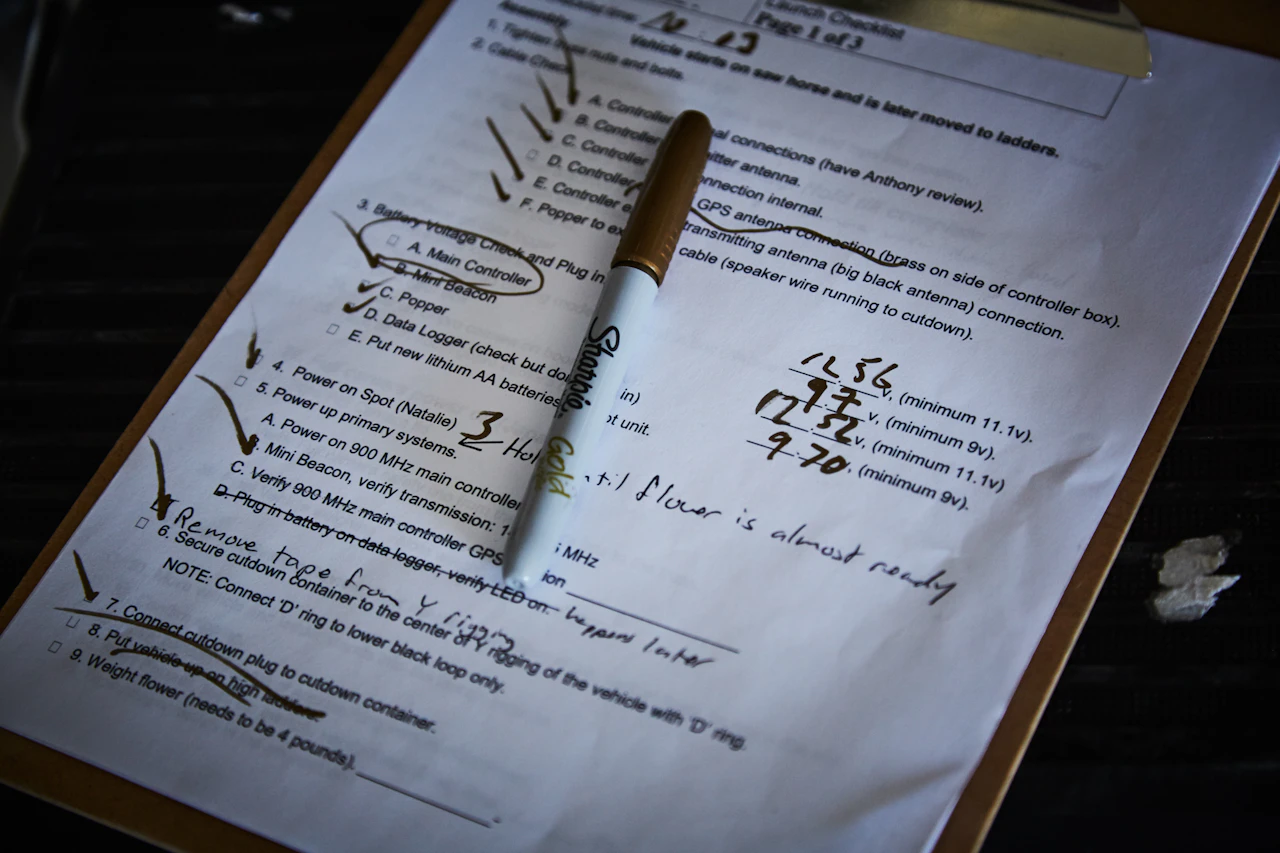 Launch Checklist
Page 1 of 3
Assembly
Vehicle starts on saw horse and is later moved to ladders.
1. Tighten nuts and bolts.
2. Cable Check
A. Controller al connections (have Anthony review).
B. Controller itter antenna.
C. Controller onnection internal.
D. Controller GPS antenna connection (brass on side of controller box).
E. Controller e transmitting antenna (big black antenna) connection.
F. Popper to ex cable (speaker wire running to cutdown).
3. Battery Voltage Check and Plug in
A. Main Controller 12.56 v, (minimum 11.1v).
B. Mini Beacon 9.7 v, (minimum 9v).
C. Popper 12.52 v, (minimum 11.1v)
D. Data Logger (check but do in) 9.70 v. (minimum 9v).
E. Put new lithium AA batteries ot unit.
4. Power on Spot (Natalie) 3 Hol til flower is almost ready
5. Power up primary systems.
A. Power on 900 MHz main controller
Mini Beacon, verify transmission: 1 MHz
C. Verify 900 MHz main controller GPS ion
D. Plug in battery on data logger, verify LED on. - happens later
Remove tape from Y rigging
6. Secure cutdown container to the center of Y rigging of the vehicle with 'D' ring.
NOTE: Connect 'D' ring to lower black loop only.
7. Connect cutdown plug to cutdown container.
8. Put vehicle up on high ladders.
9. Weight flower (needs to be 4 pounds).
Sharpie. Gold